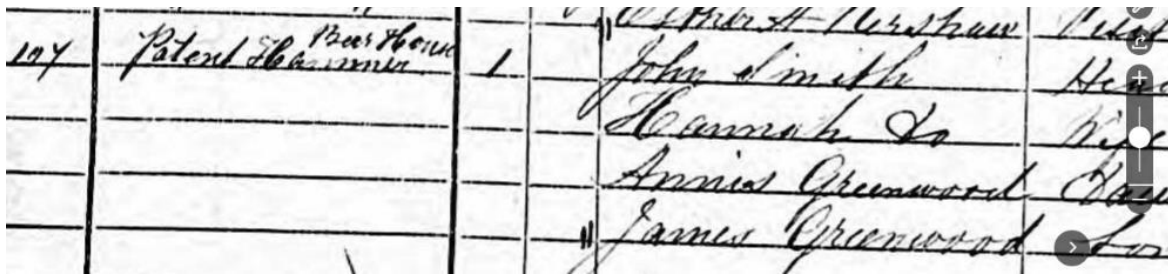 Kershaw
197 Patent Hammer Beer House 1 John Smith Head
Hannah Do Wife
Annis Greenwood Dau
James Greenwood Son